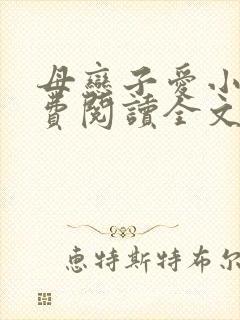 母戀子愛小
費閱讀全文
惠特斯特布尔